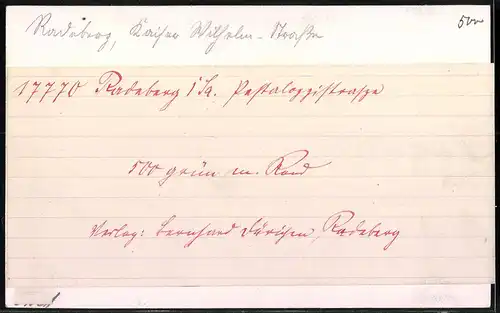 Radeberg, Kaiser Wilhelm-Straße 500
17770 Radeberg i/Sa. Pestalozzistrasse
500 grün m. Rand
Verlag: Bernhard Dürichen, Radeberg